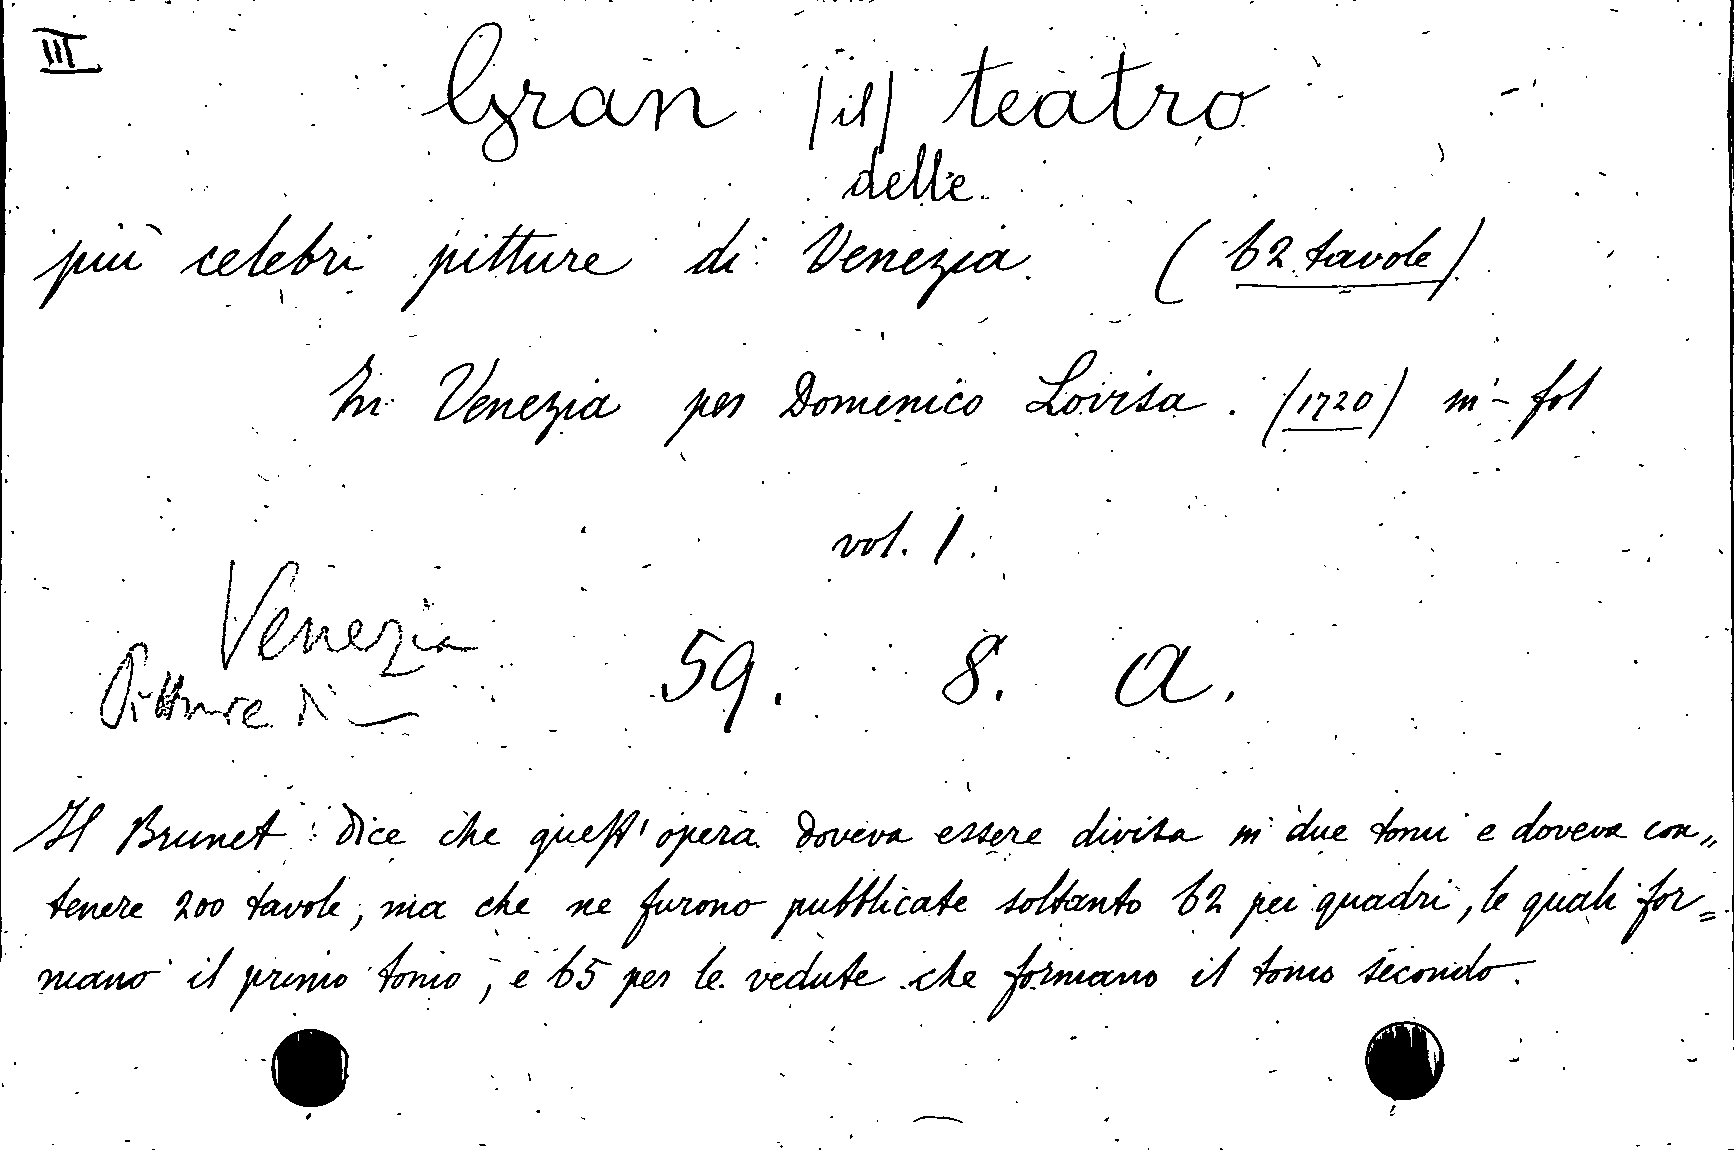 III
Gran (il) teatro
delle
più celebri pitture di Venezia. (62 tavole)
In Venezia per Domenico Lovisa. (1720) in-fol
vol. 1.
Venezia
Pitture di —
59. 8. a.
Il Brunet dice che quest' opera doveva essere divisa in due tomi e doveva con„
tenere 200 tavole, ma che ne furono pubblicate soltanto 62 pei quadri, le quali for=
mano il primo tomo, e 65 per le vedute che formano il tomo secondo.